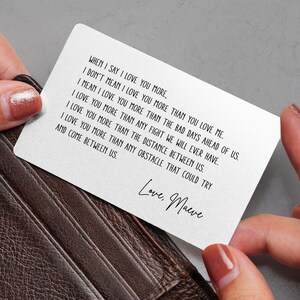 WHEN I SAY I LOVE YOU MORE,
I DON'T MEAN I LOVE YOU MORE THAN YOU LOVE ME.
I MEAN I LOVE YOU MORE THAN THE BAD DAYS AHEAD OF US.
I LOVE YOU MORE THAN ANY FIGHT WE WILL EVER HAVE.
I LOVE YOU MORE THAN THE DISTANCE BETWEEN US.
I LOVE YOU MORE THAN ANY OBSTACLE THAT COULD TRY
AND COME BETWEEN US.
Love, Maeve